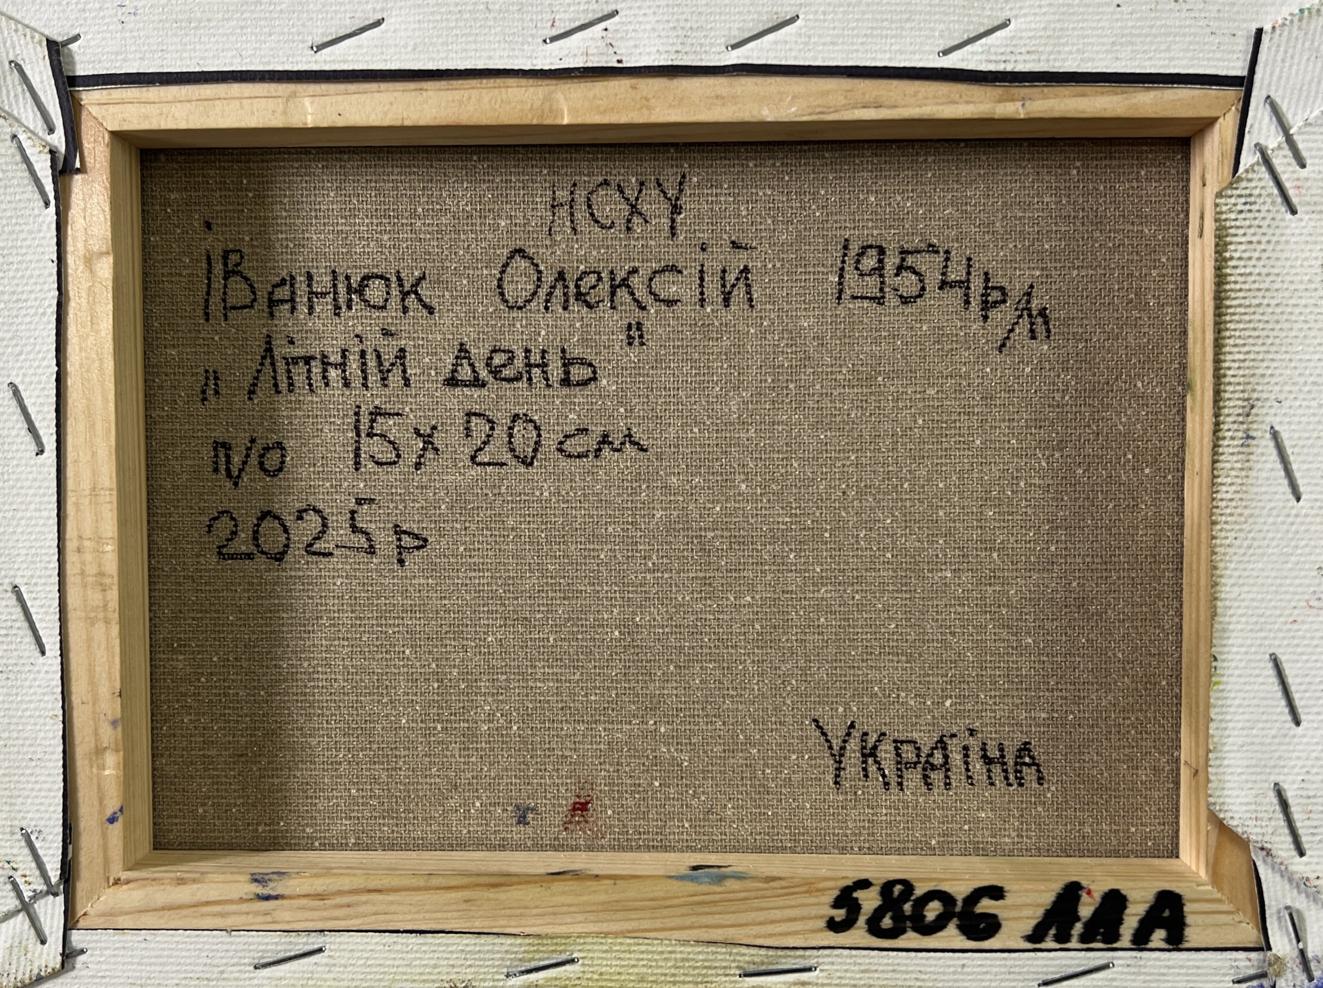 НСХУ
Іванюк Олексій 1954р/н
„Літній день"
п/о 15х20см
2025р
Україна
5806 ЛЛА